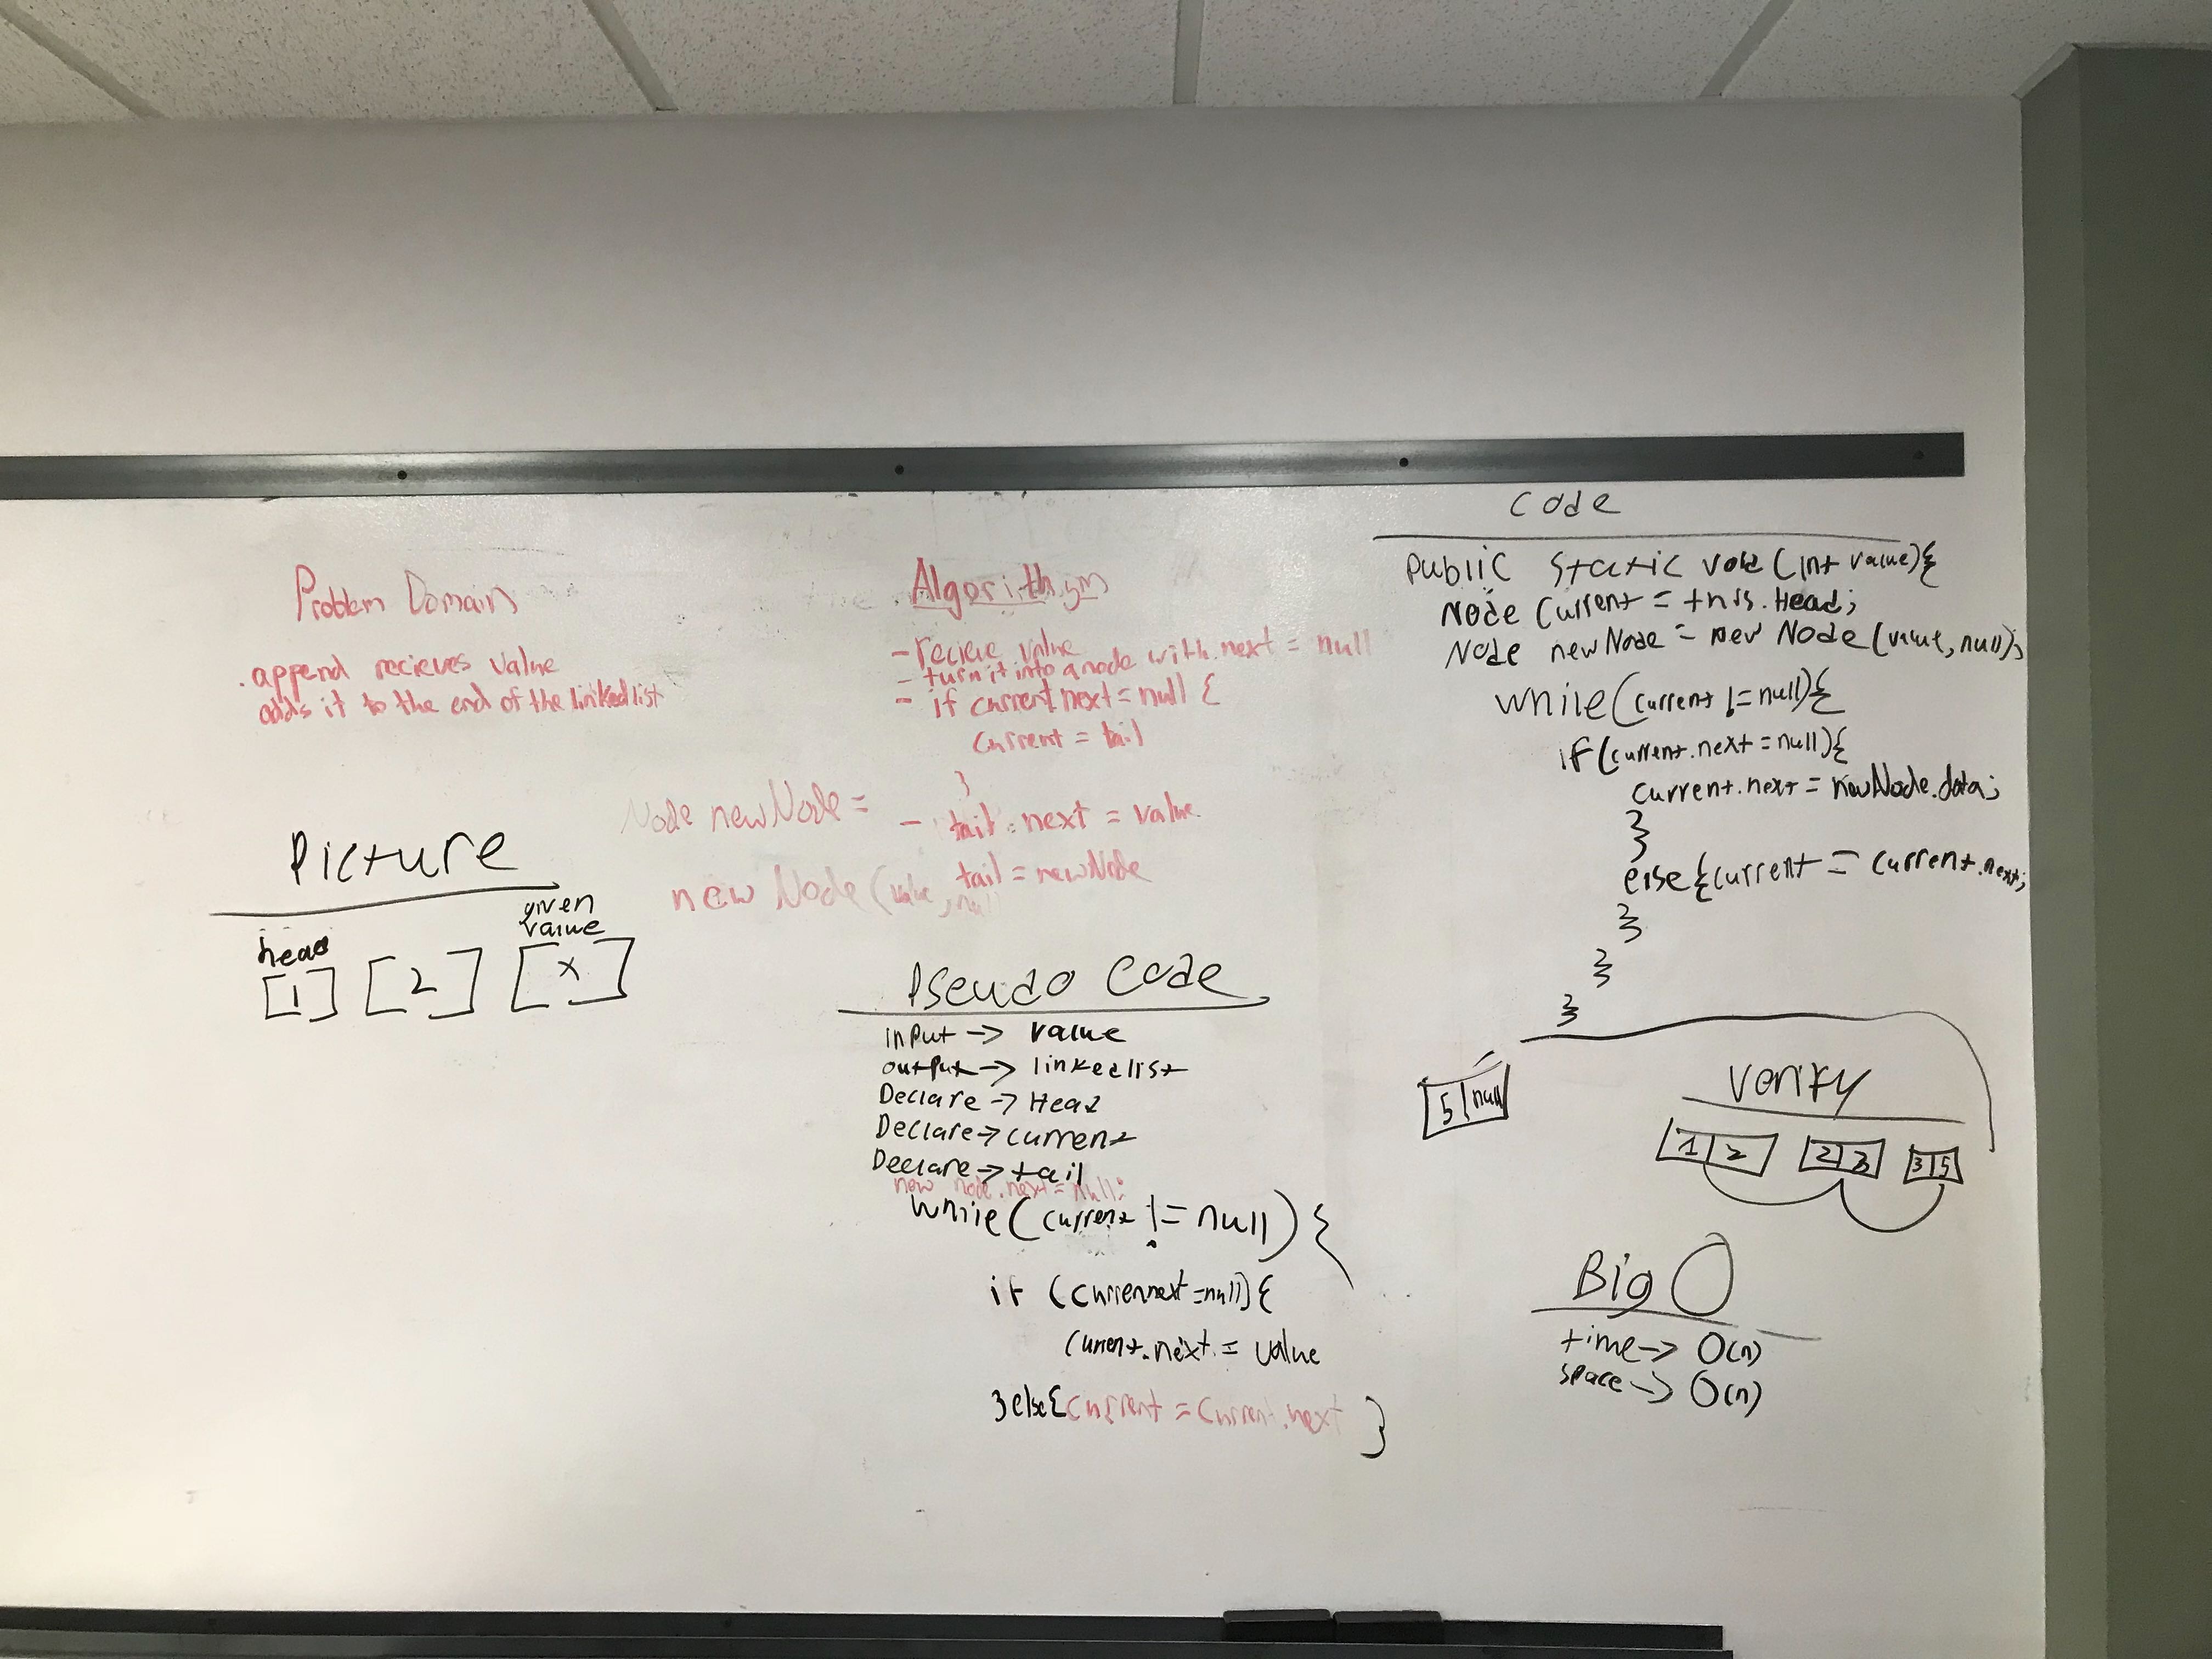 Problem Domain
.append recieves value
adds it to the end of the linkedlist
Picture
head
given
value
[1] [2] [x]
Algorithym
- recieve value
- turn it into a node with.next = null
- if current next = null {
current = tail
}
- tail.next = value
tail = newNode
Node newNode =
new Node(value, null
Pseudo Code
input -> value
output -> linkedlist
Declare -> Head
Declare -> current
Declare -> tail
new node.next = null;
while(current != null) {
if (currennext = null){
current.next = value
}else{current = current.next }
Code
public static void (int value){
Node current = this.Head;
Node newNode = new Node(value, null);
while(current != null){
if(current.next = null){
current.next = newNode.data;
}
else{current = current.next;
}
}
}
5|null
Verify
1|2 2|3 3|5
Big O
time -> O(n)
space -> O(n)